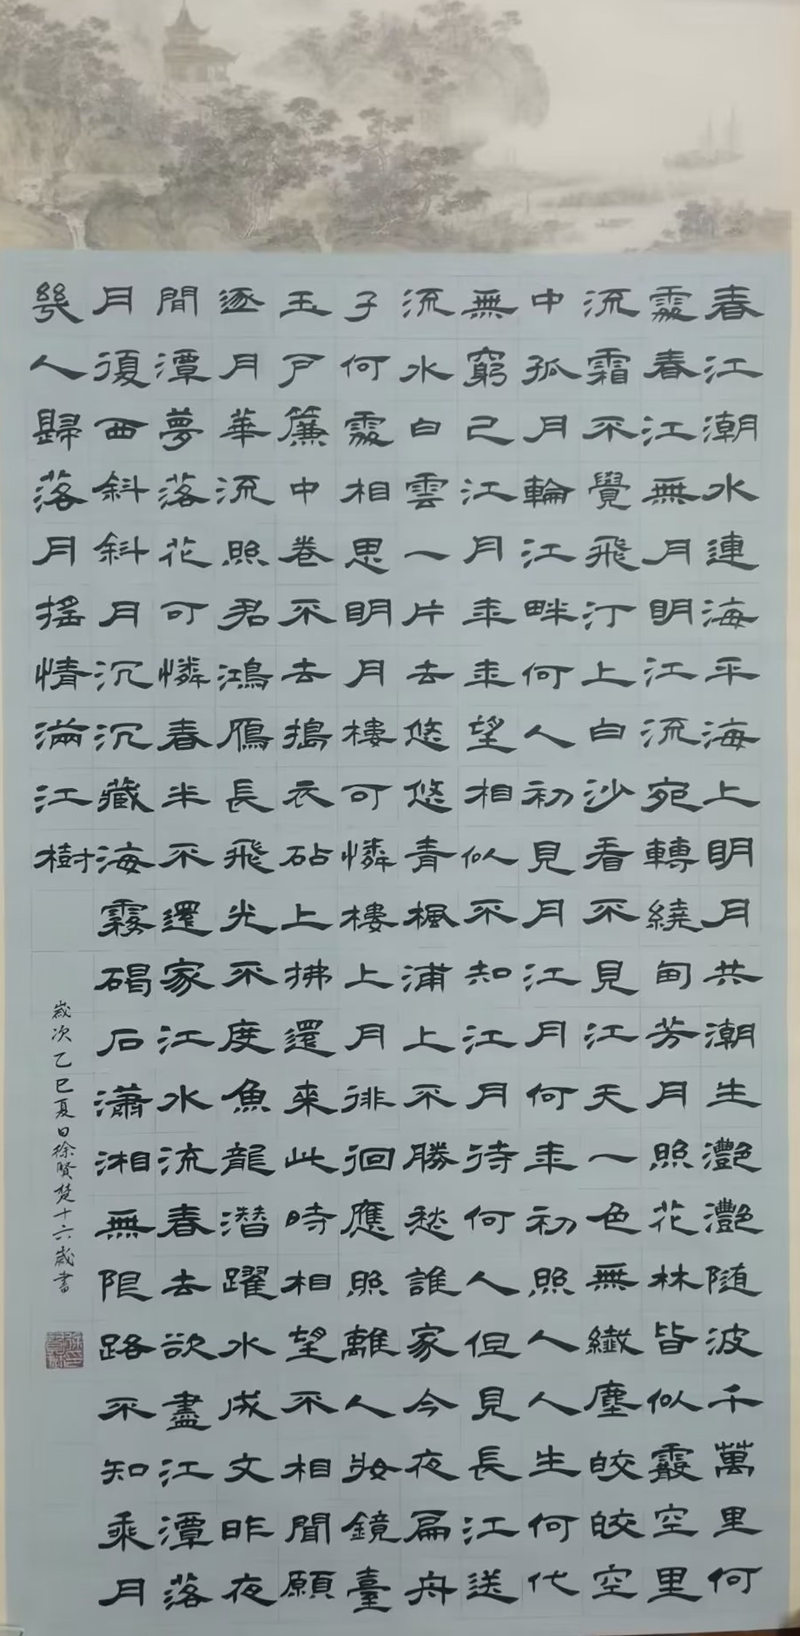 春江潮水連海平海上明月共潮生灩灩随波千萬里何
處春江無月明江流宛轉繞甸芳月照花林皆似霰空里
流霜不覺飛汀上白沙看不見江天一色無纖塵皎皎空
中孤月輪江畔何人初見月江月何年初照人人生何代
無窮已江月年年望相似不知江月待何人但見長江送
流水白雲一片去悠悠青楓浦上不勝愁誰家今夜扁舟
子何處相思明月樓可憐樓上月徘徊應照離人妝鏡臺
玉戶簾中卷不去搗衣砧上拂還來此時相望不相聞願
逐月華流照君鴻雁長飛光不度魚龍潛躍水成文昨夜
間潭夢落花可憐春半不還家江水流春去欲盡江潭落
月復西斜斜月沉沉藏海霧碣石瀟湘無限路不知乘月
幾人歸落月搖情滿江樹
歲次乙巳夏日徐賢楚十六歲書